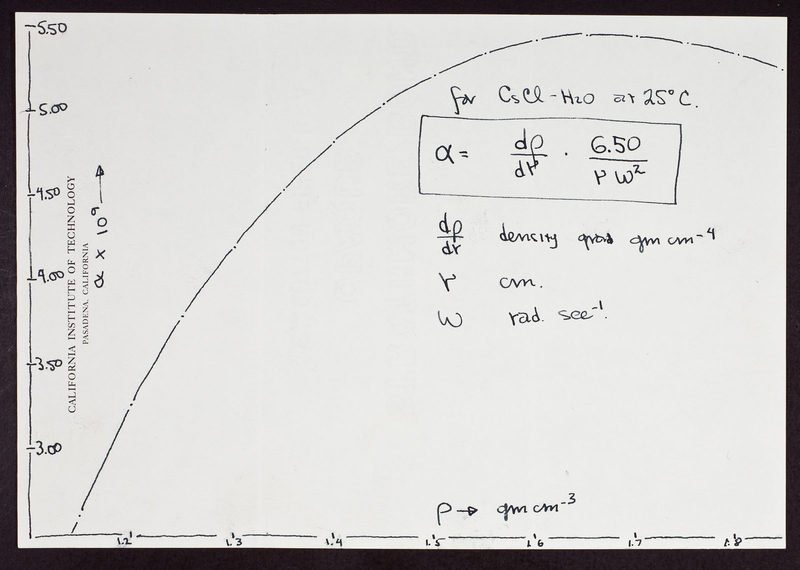 5.50
5.00
4.50
4.00
3.50
3.00
α × 10⁹ →
CALIFORNIA INSTITUTE OF TECHNOLOGY
PASADENA, CALIFORNIA
for CsCl - H₂O at 25°C.
α = dρ/dr · 6.50/r ω²
dρ/dr density grad gm cm⁻⁴
r cm.
ω rad. sec⁻¹.
ρ → gm cm⁻³
1.2 1.3 1.4 1.5 1.6 1.7 1.8